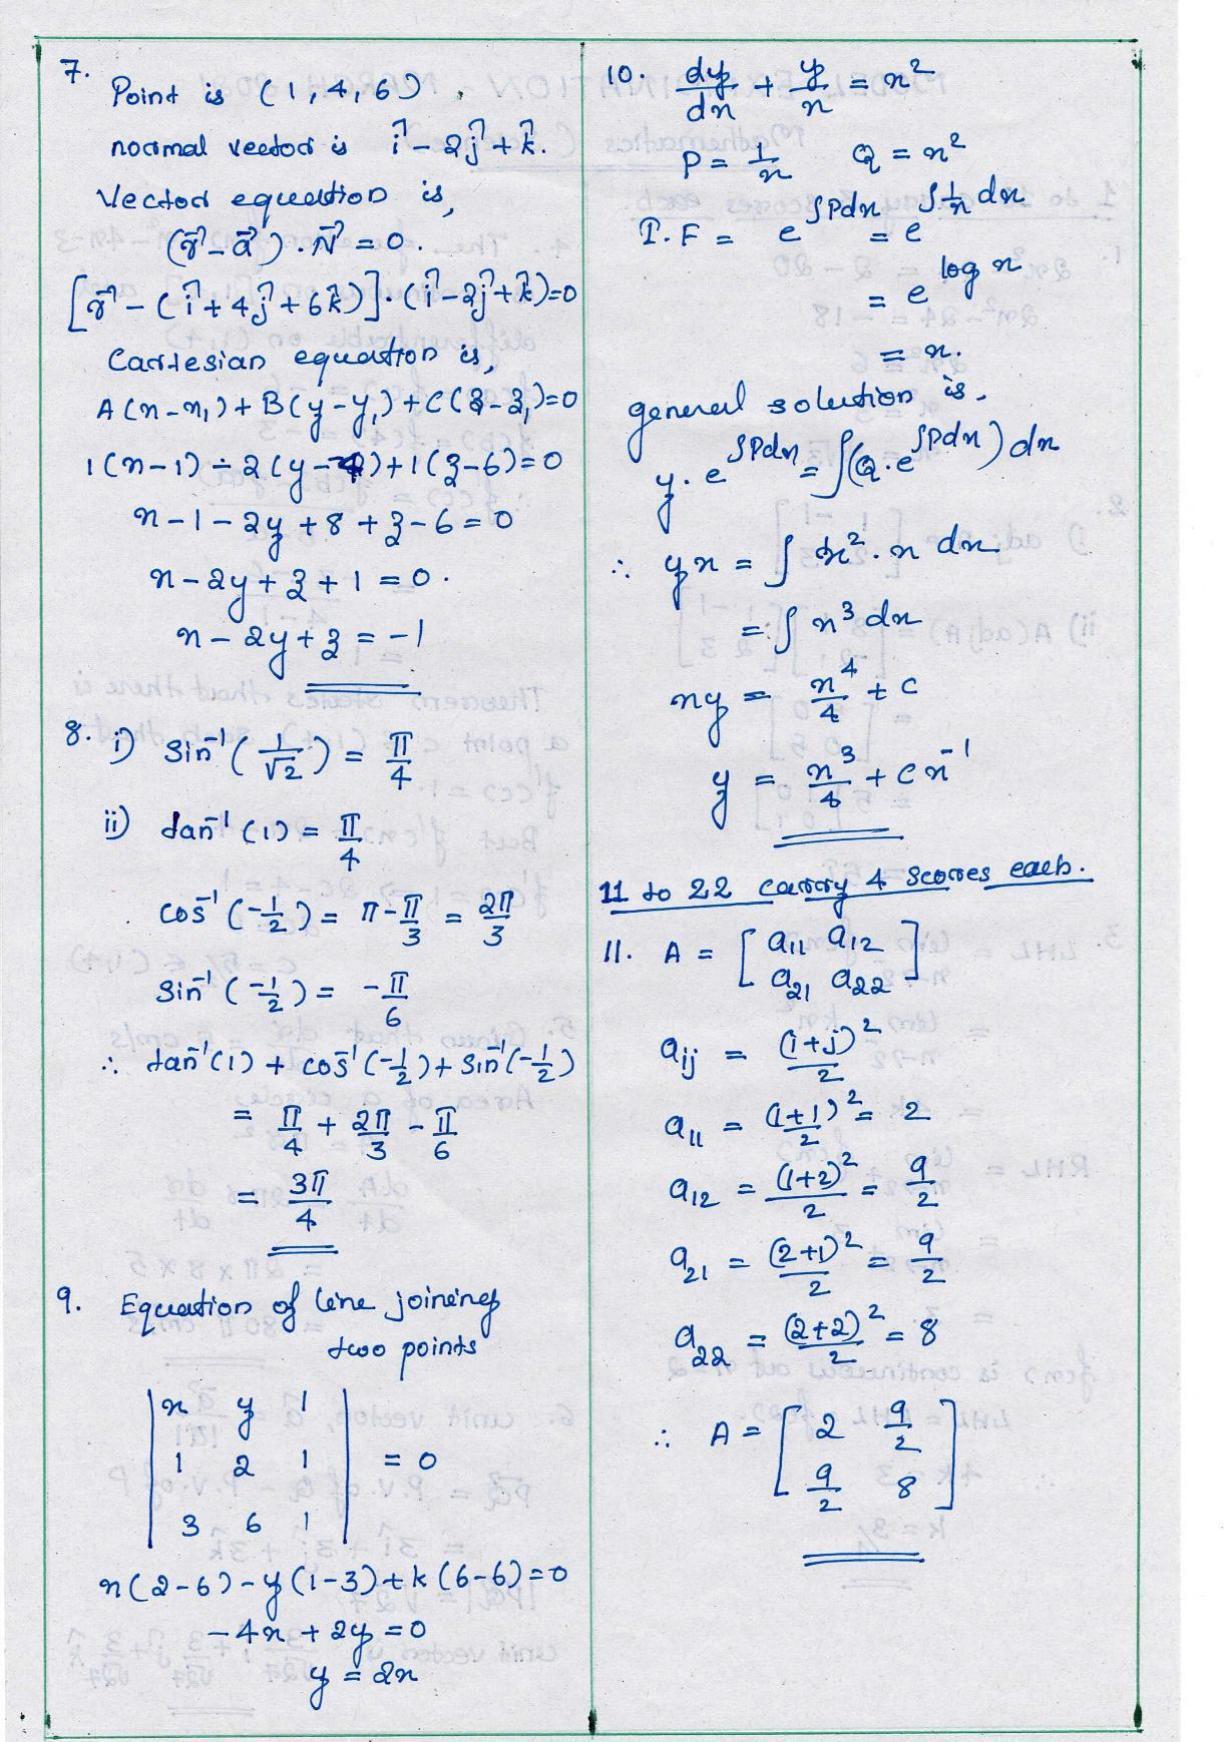 7.
Point is (1, 4, 6)
normal vector is î - 2ĵ + k̂.
Vector equation is,
(r⃗ - a⃗) . N⃗ = 0.
[r⃗ - (î + 4ĵ + 6k̂)] · (î - 2ĵ + k̂) = 0
Cartesian equation is,
A(x - x₁) + B(y - y₁) + C(z - z₁) = 0
1(x - 1) - 2(y - 4) + 1(z - 6) = 0
x - 1 - 2y + 8 + z - 6 = 0
x - 2y + z + 1 = 0.
x - 2y + z = -1
8. i) Sin⁻¹(1/√2) = π/4
ii) tan⁻¹(1) = π/4
cos⁻¹(-1/2) = π - π/3 = 2π/3
Sin⁻¹(-1/2) = -π/6
∴ tan⁻¹(1) + cos⁻¹(-1/2) + Sin⁻¹(-1/2)
= π/4 + 2π/3 - π/6
= 3π/4
9. Equation of line joining
two points
| x y 1 |
| 1 2 1 | = 0
| 3 6 1 |
x(2-6) - y(1-3) + k(6-6) = 0
-4x + 2y = 0
y = 2x
10. dy/dx + y/x = x²
P = 1/x Q = x²
I.F = e^∫Pdx = e^∫1/x dx
= e^log x
= x.
general solution is.
y. e^∫Pdx = ∫(Q. e^∫Pdx) dx
∴ yx = ∫ x² . x dx
= ∫ x³ dx
xy = x⁴/4 + c
y = x³/4 + c x⁻¹
11 to 22 carry 4 scores each.
11. A = [a₁₁ a₁₂
a₂₁ a₂₂]
aij = (i+j)²/2
a₁₁ = (1+1)²/2 = 2
a₁₂ = (1+2)²/2 = 9/2
a₂₁ = (2+1)²/2 = 9/2
a₂₂ = (2+2)²/2 = 8
∴ A = [2 9/2
9/2 8]